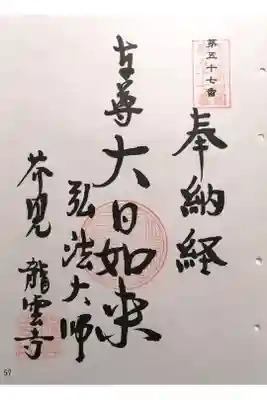 第五十七番
奉納経
本尊 大日如来
弘法大師
芥見 龍雲寺
57